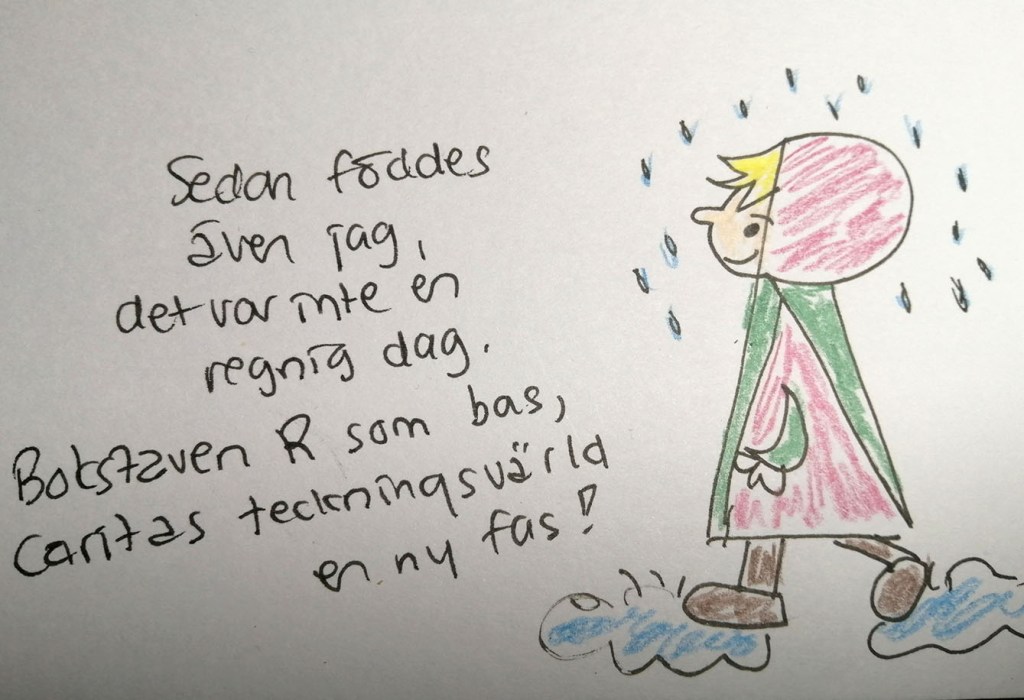 Sedan föddes
även jag,
det var inte en
regnig dag.
Bokstaven R som bas,
Caritas teckningsvärld
en ny fas!